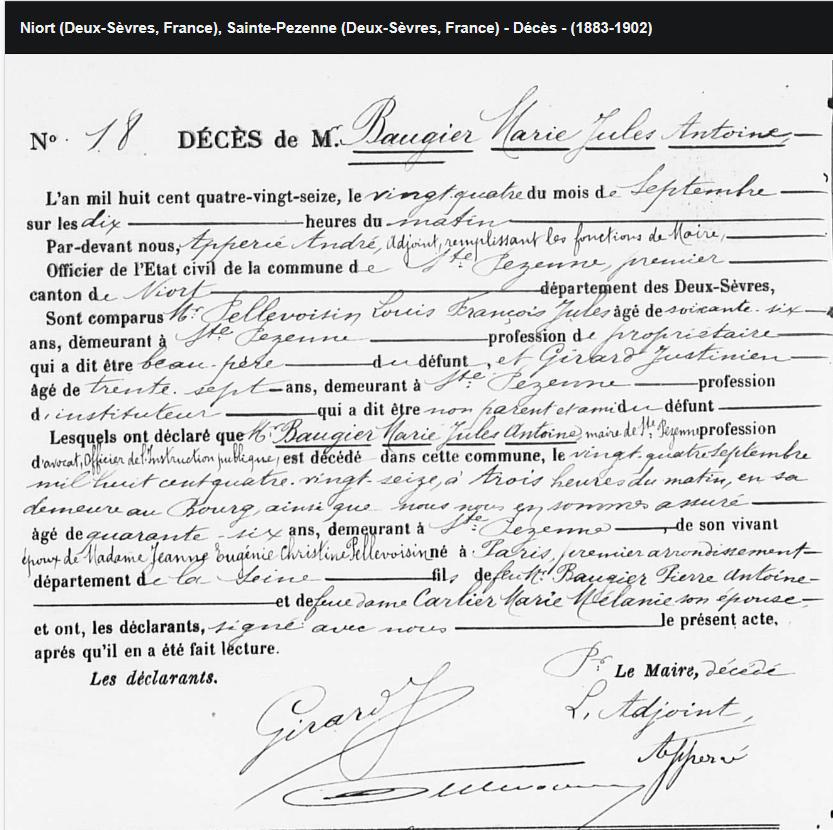 Niort (Deux-Sèvres, France), Sainte-Pezenne (Deux-Sèvres, France) - Décès - (1883-1902)
N° 18 DÉCÈS de Mr. Baugier Marie Jules Antoine
L'an mil huit cent quatre-vingt-seize, le vingt quatre du mois de Septembre
sur les dix heures du matin
Par-devant nous, Apperié André, Adjoint, remplissant les fonctions de Maire,
Officier de l'Etat civil de la commune de Ste Pezenne, premier
canton de Niort département des Deux-Sèvres,
Sont comparus Mr Pellevoisin Louis François Jules âgé de soixante-six
ans, demeurant à Ste Pezenne profession de propriétaire
qui a dit être beau-père du défunt, et Girard Justinien
âgé de trente-sept ans, demeurant à Ste Pezenne profession
d'instituteur qui a dit être non parent et ami du défunt
Lesquels ont déclaré que Mr Baugier Marie Jules Antoine, maire de Ste Pezenne profession
d'avocat, Officier de l'Instruction publique, est décédé dans cette commune, le vingt-quatre septembre
mil huit cent quatre-vingt-seize, à trois heures du matin, en sa
demeure au Bourg, ainsi que nous nous en sommes assuré
âgé de quarante-six ans, demeurant à Ste Pezenne, de son vivant
époux de Madame Jeanne Eugénie Christine Pellevoisin né à Paris, premier arrondissement
département de la Seine fils de feu Mr Baugier Pierre Antoine
et de feue dame Cartier Marie Mélanie son épouse
et ont, les déclarants, signé avec nous le présent acte,
aprés qu'il en a été fait lecture.
Les déclarants. Pr Le Maire, décédé
L'Adjoint,
Girard J
Apperié